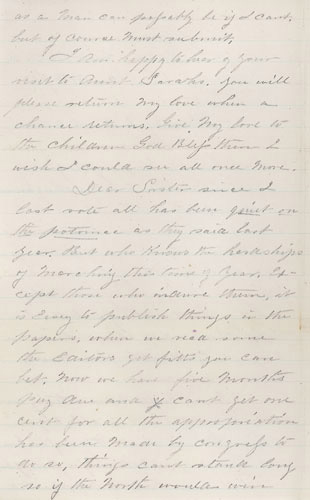 as a man can possibly be if I cant.
but of course must submit.
I am happy to hear of your
visit to Aunt Sarahs. you will
please return my love when a
chance returns. Give my love to
the children God Bless them I
wish I could see all once more.
Dear Sister since I
last rote all has been quiet on
the potomac as they said last
year. But who knows the hardships
of Marching this time of year. Ex-
cept those who indure them, it
is Easy to publish things in the
papers. when we read some
the Editors get fitts you can
bet. Now we have five Months
pay due and cant get one
cent for all the appropriation
has been made by congress to
do so, things cant stand long
so if the North would win